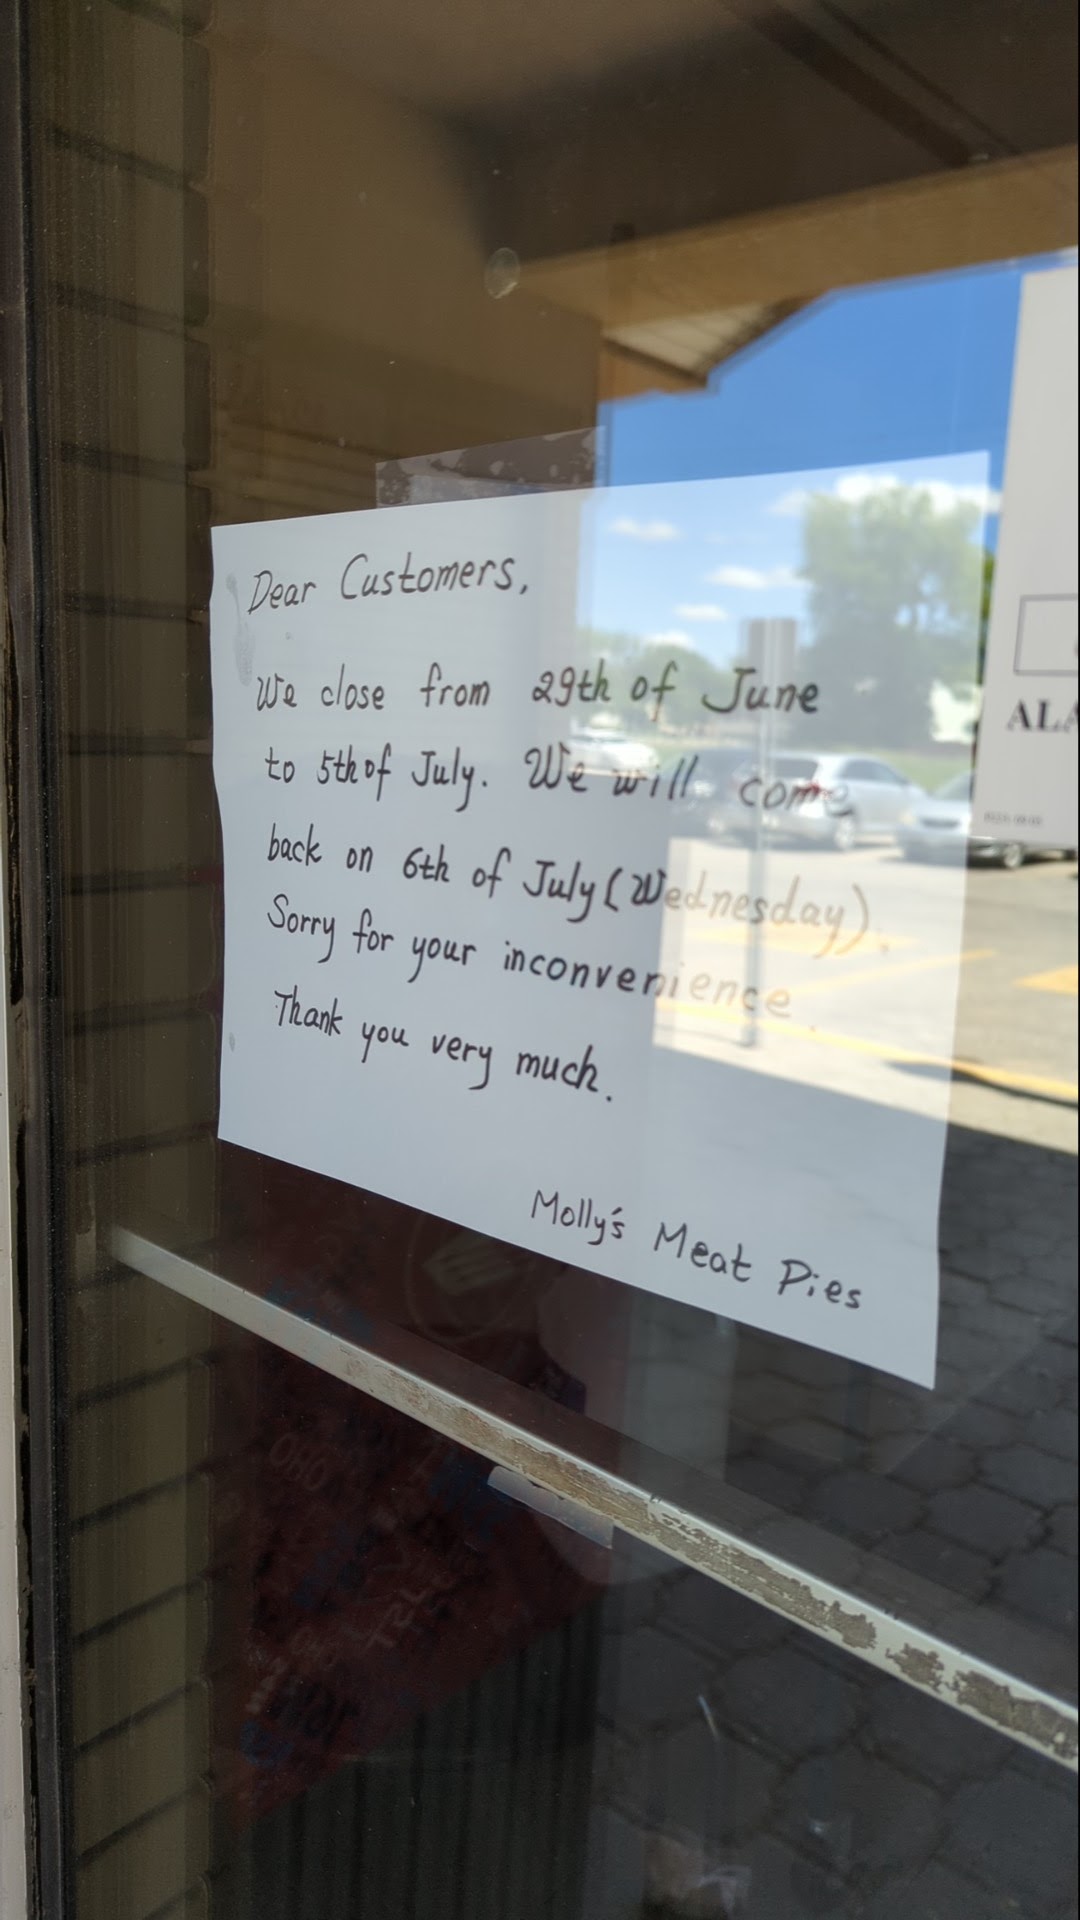 Dear Customers,
We close from 29th of June
to 5th of July. We will come
back on 6th of July (Wednesday).
Sorry for your inconvenience.
Thank you very much.
Molly's Meat Pies
ALA
OHO